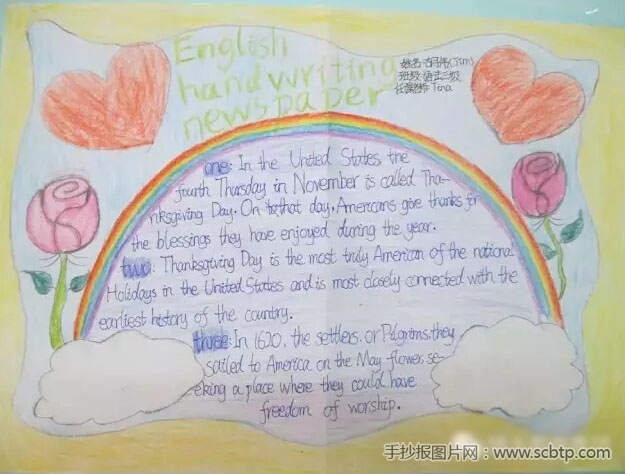 English
handwriting
newspaper
姓名:
(Jim)
班级:
Tina
one: In the United States, the
fourth Thursday in November is called Tha-
nksgiving Day. On that day, Americans give thanks for
the blessings they have enjoyed during the year.
two: Thanksgiving Day is the most truly American of the national
Holidays in the United States and is most closely connected with the
earliest history of the country.
three: In 1620, the settlers, or Pilgrims, they
sailed to America on the May flower, se-
eking a place where they could have
freedom of worship.
手抄报图片网
www.scbtp.com